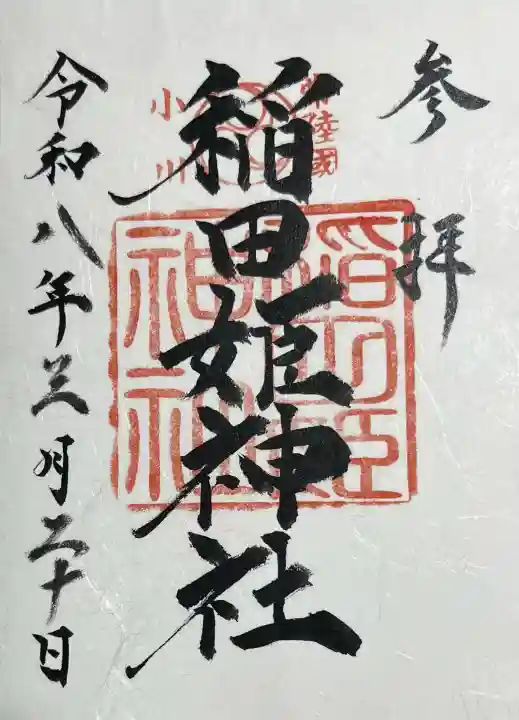 参拝
常陸國
小川
稲田姫神社
令和八年三月二十日